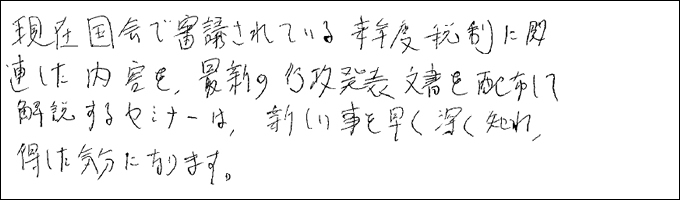 現在国会で審議されている来年度税制に関
連した内容を、最新の行政発表文書を配布して
解説するセミナーは、新しい事を早く深く知れ、
得した気分になります。